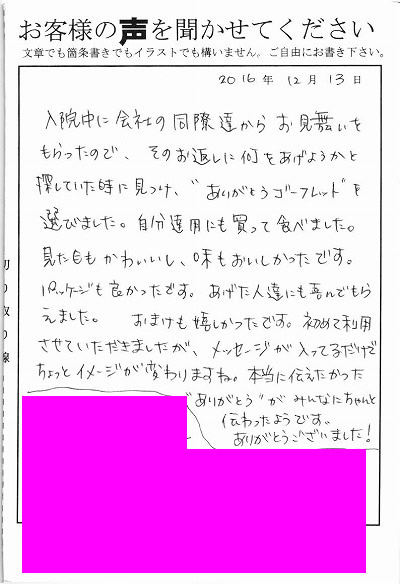 お客様の声を聞かせてください
文章でも箇条書きでもイラストでも構いません。ご自由にお書き下さい。
2016年 12月 13日
入院中に会社の同僚達からお見舞いを
もらったので、そのお返しに何をあげようかと
探していた時に見つけ、"ありがとうゴーフレッド"を
選びました。自分達用にも買って食べました。
見た目もかわいいし、味もおいしかったです。
パッケージも良かったです。あげた人達にも喜んでもら
えました。 おまけも嬉しかったです。初めて利用
させていただきましたが、メッセージが入ってるだけで
ちょっとイメージが変わりますね。本当に伝えたかった
"ありがとう"が みんなにちゃんと
伝わったようです。
ありがとうございました!
切り取り線